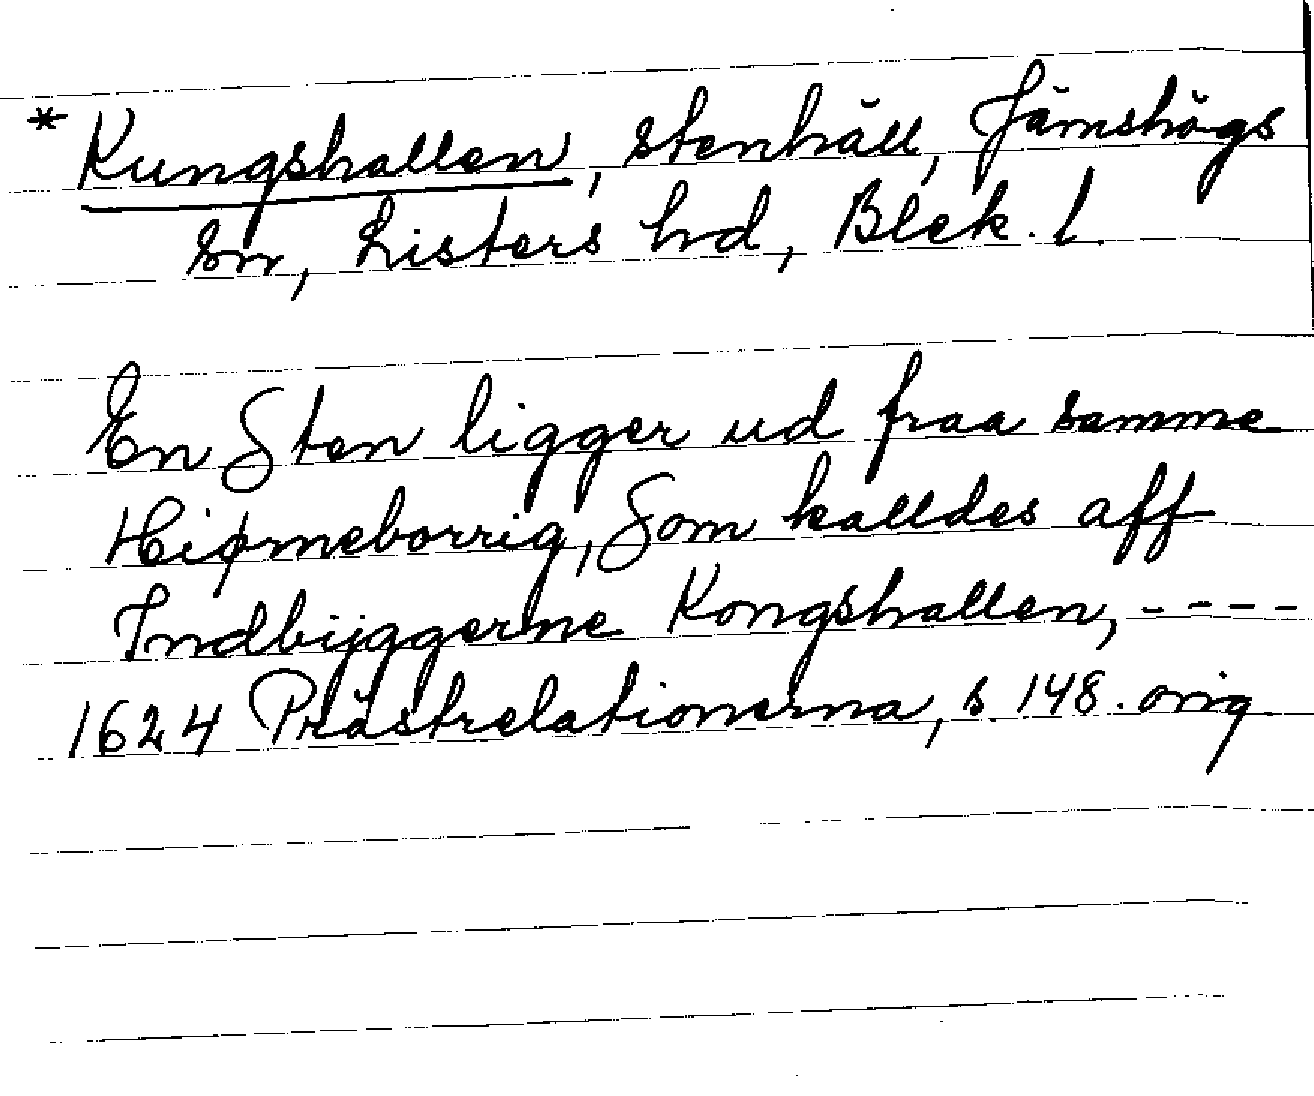 * Kungshallen, stenhäll, Jämshögs
sn, Listers hd, Blek. l.
En Sten ligger ud fraa samme
Hiørneborrig, Som kalldes aff
Indbijggerne Kongshallen, ----
1624 Prästrelationerna, s. 148. orig